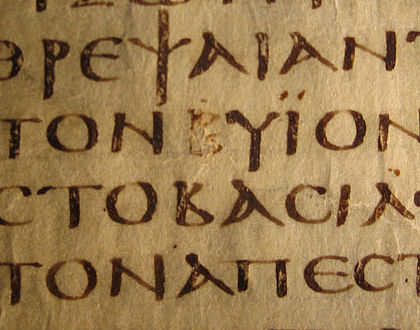 ΘΡΕΨΑΙΑΝΤ
ΤΟΝΥΪΟΝ
ϹΤΟΒΑϹΙΛ
ΤΟΝΑΠΕϹΤ